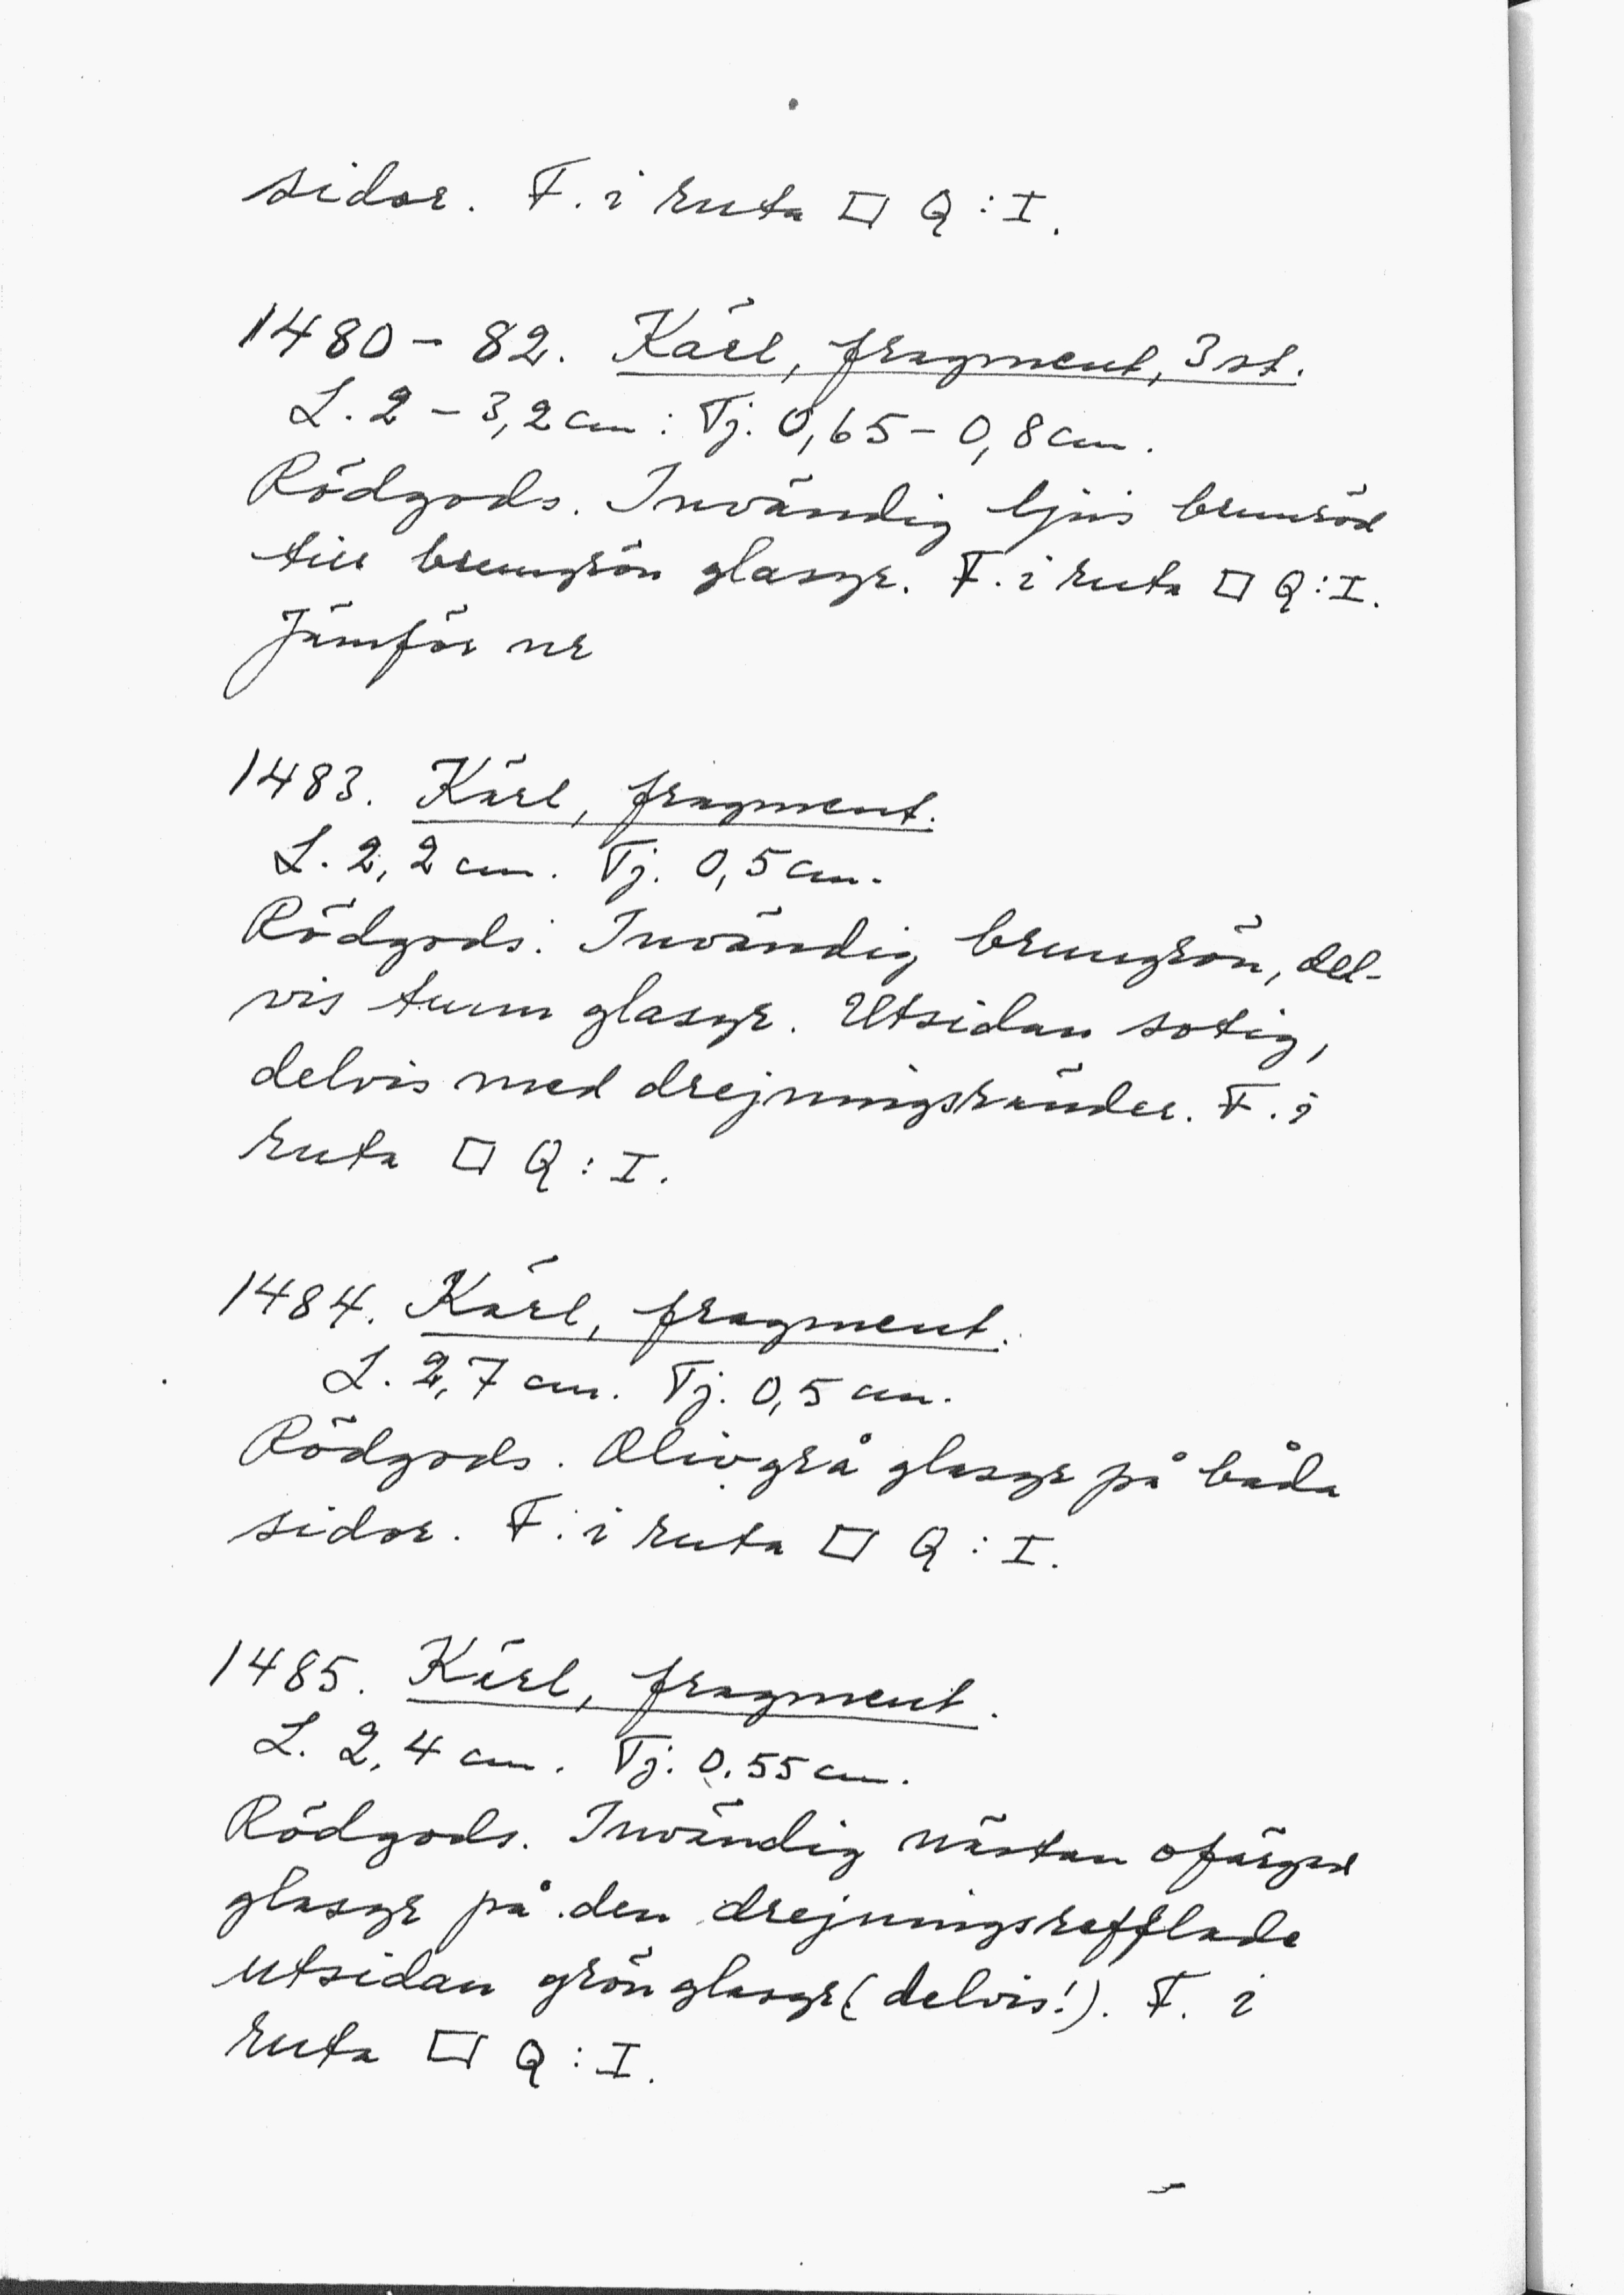 sidor. F. i ruta □ Q : I.
1480 – 82. Kärl, fragment, 3 st.
L. 2 – 3,2 cm : Tj. 0,65 – 0,8 cm.
Rödgods. Invändig ljus brunröd
till brungrön glasyr. F. i ruta □ Q : I.
Jämför nr
1483. Kärl, fragment.
L. 2,2 cm. Tj. 0,5 cm.
Rödgods. Invändig brungrön, del-
vis tunn glasyr. Utsidan sotig,
delvis med drejningsränder. F. i
ruta □ Q : I.
1484. Kärl, fragment.
L. 2,7 cm. Tj. 0,5 cm.
Rödgods. Olivgrå glasyr på båda
sidor. F. i ruta □ Q : I.
1485. Kärl, fragment.
L. 2,4 cm. Tj. 0,55 cm.
Rödgods. Invändig nästan ofärgad
glasyr på den drejningsrefflade
utsidan grön glasyr (delvis!). F. i
ruta □ Q : I.